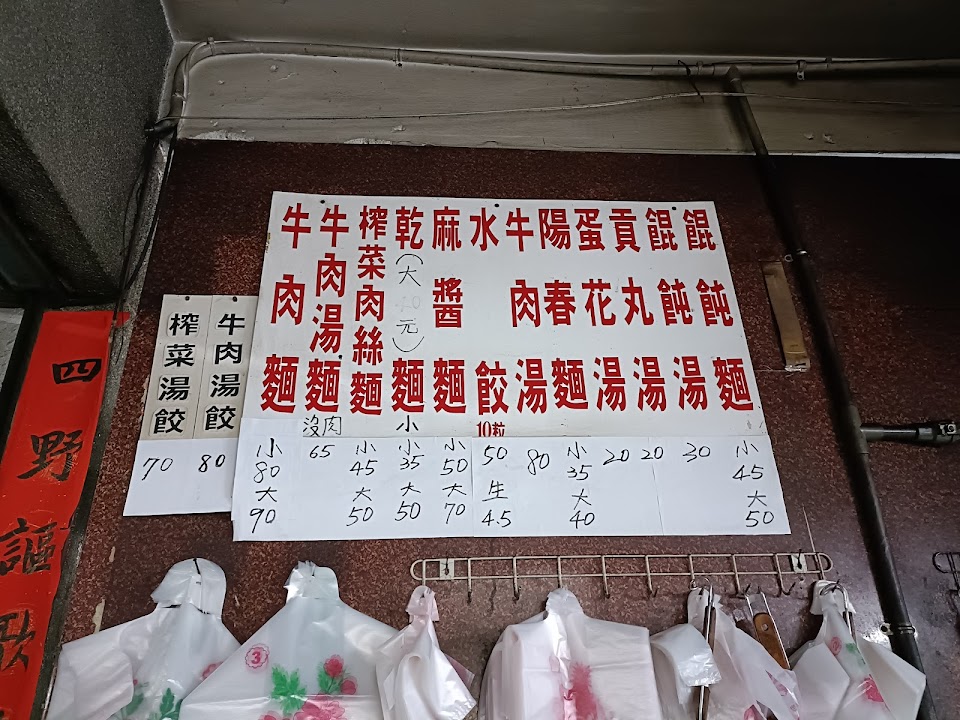 餛飩麵
小45大50
餛飩湯
30
貢丸湯
20
蛋花湯
20
陽春麵
小35大40
牛肉湯
80
水餃
10粒
50
生4.5
麻醬麵
小50大70
乾(大元)麵
小
小35大50
榨菜肉絲麵
小45大50
牛肉湯麵
沒肉
65
牛肉麵
小80大90
牛肉湯餃
80
榨菜湯餃
70
四野謳歌
3